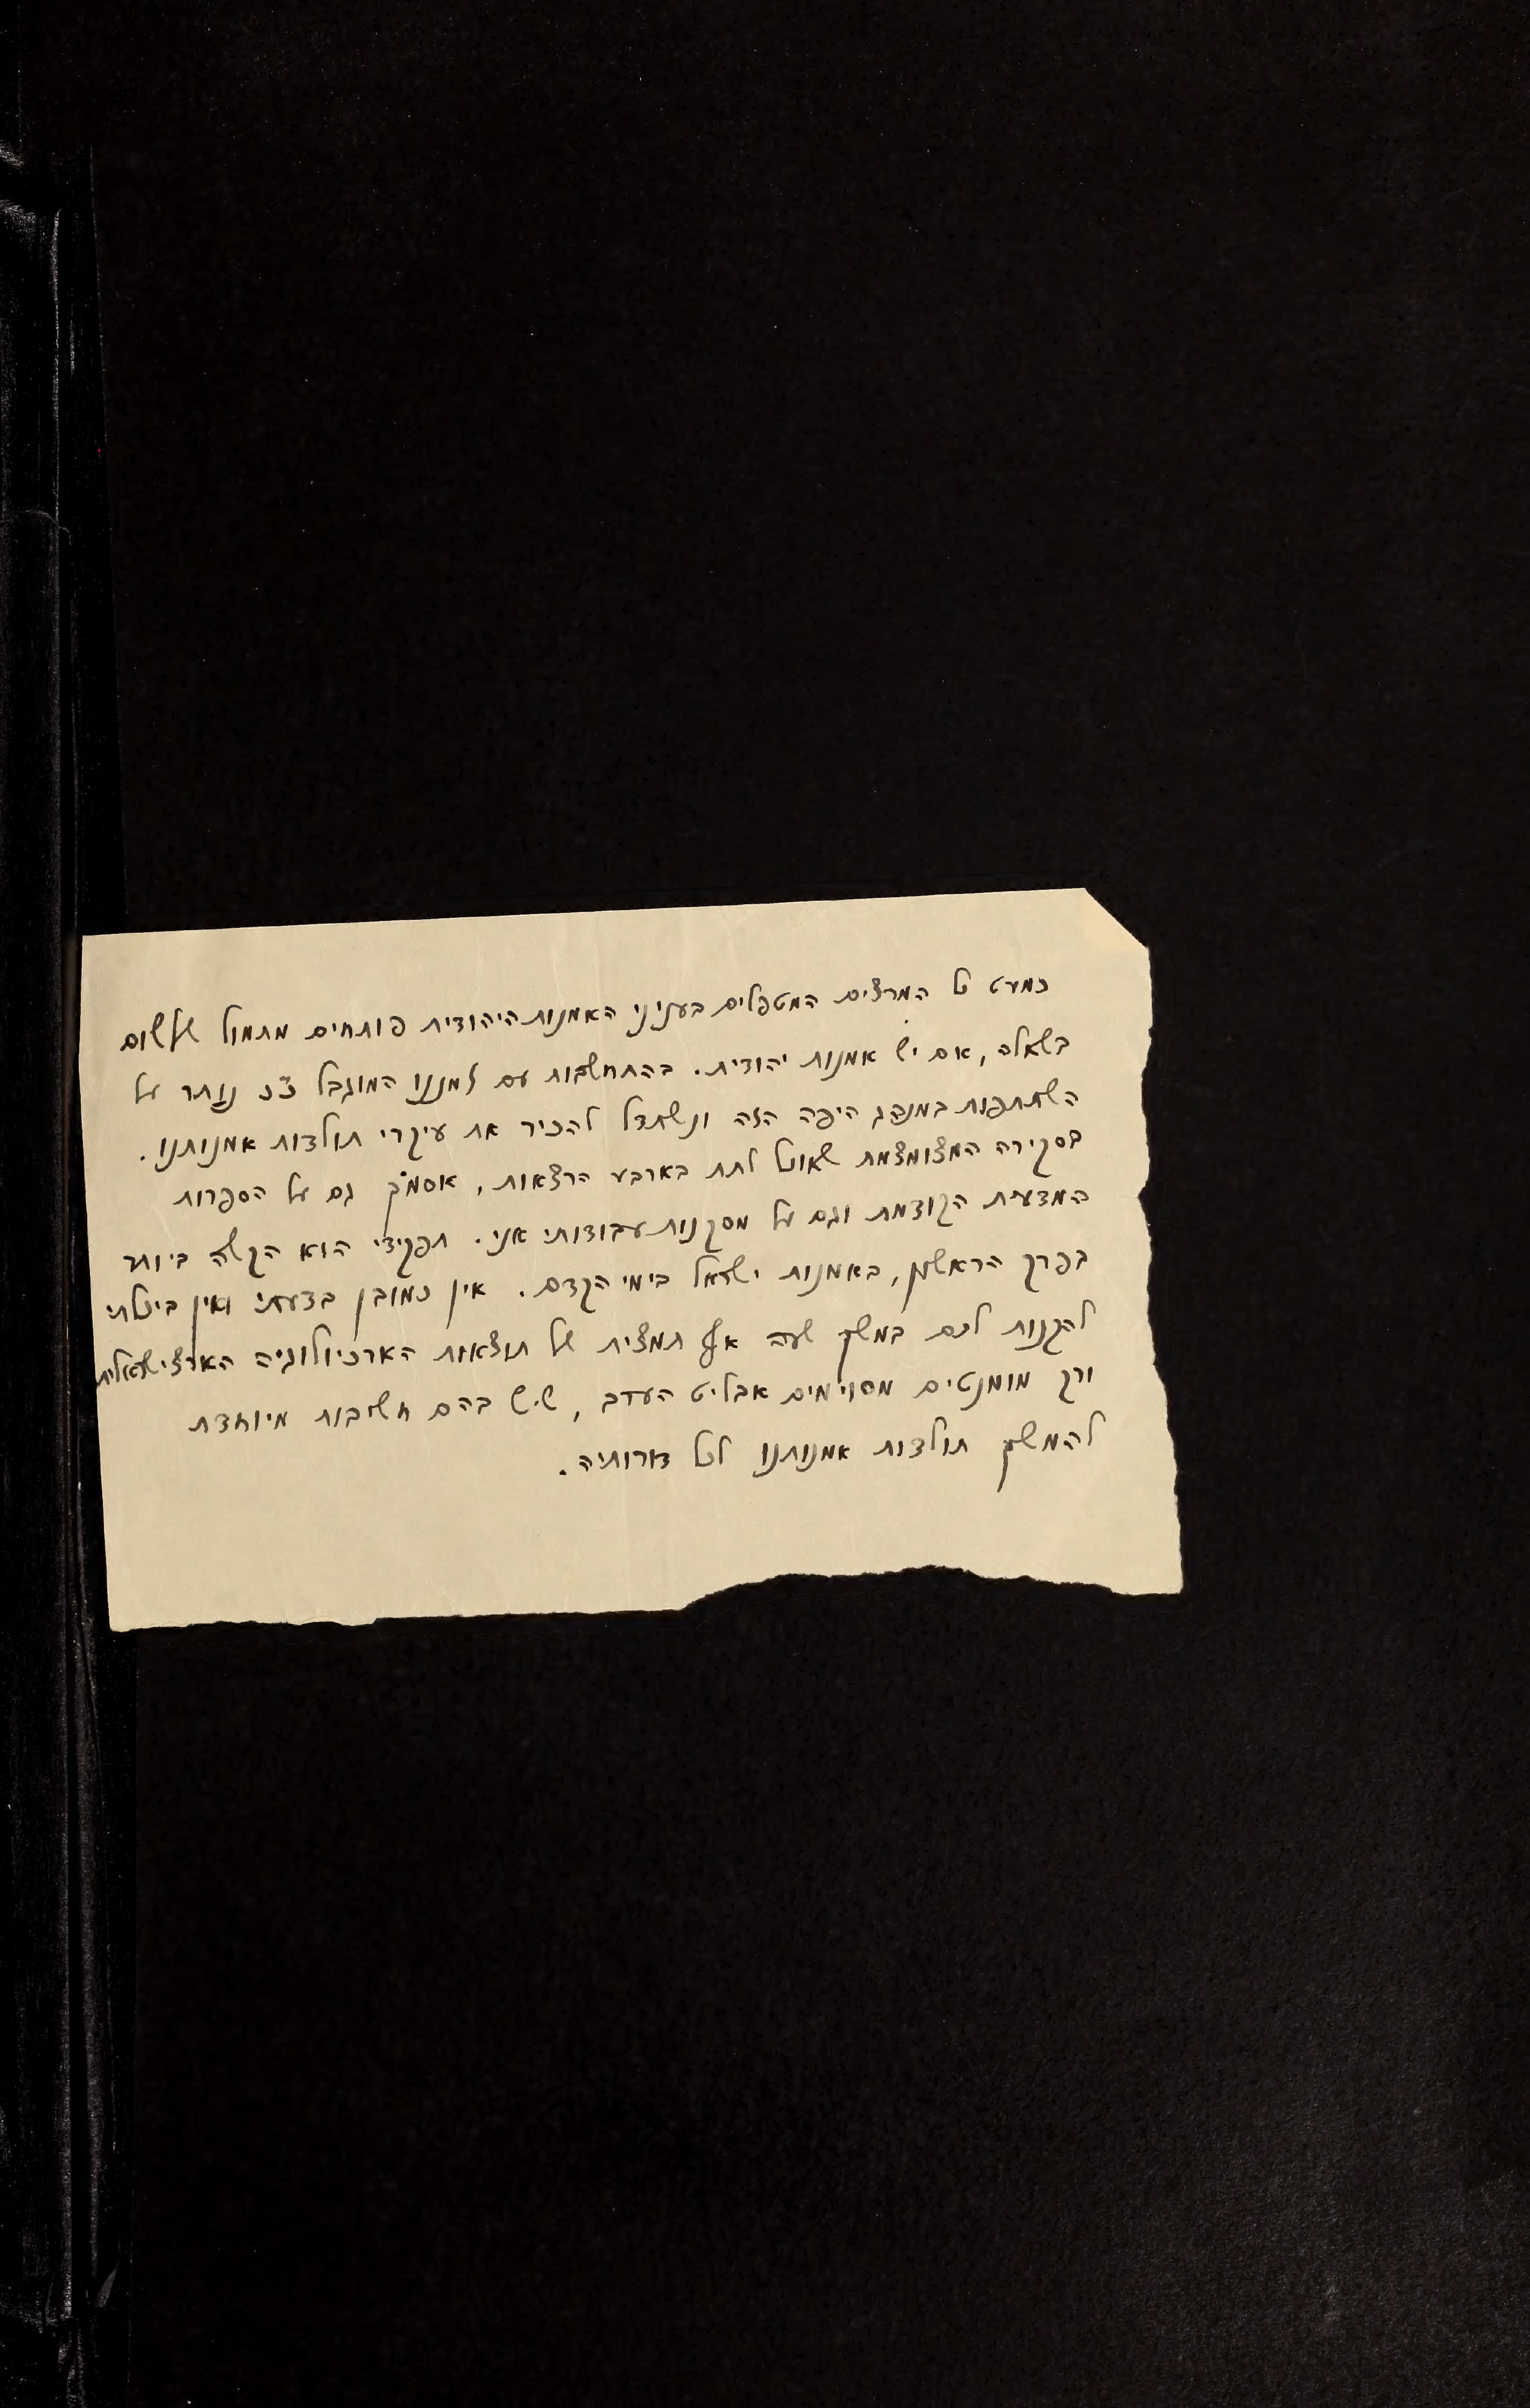 כמעט כל המרצים המטפלים בעניני האמנות היהודית פותחים מתמול שלשום
בשאלה, אם יש אמנות יהודית. בהתחשבות עם זמננו המוגבל נותר על
השתתפות במנהג היפה הזה ונשתדל להכיר את עיקרי תולדות אמנותנו.
בסקירה המצומצמת שאוכל לתת בארבע הרצאות, אסמך גם על הספרות
המדעית הקודמת וגם על מסקנות עבודותי אני. תפקידי הוא הקשה ביותר
בפרק הראשון, באמנות ישראל בימי הקדם. אין כמובן בדעתי ואין ביכלתי
להקנות לכם במשך שעה אף תמצית של תוצאות הארכיולוגיה הארצישראלית
ורק מומנטים מסוימים אבליט הערב, שיש בהם חשיבות מיוחדת
להמשך תולדות אמנותנו לכל דורותיה.